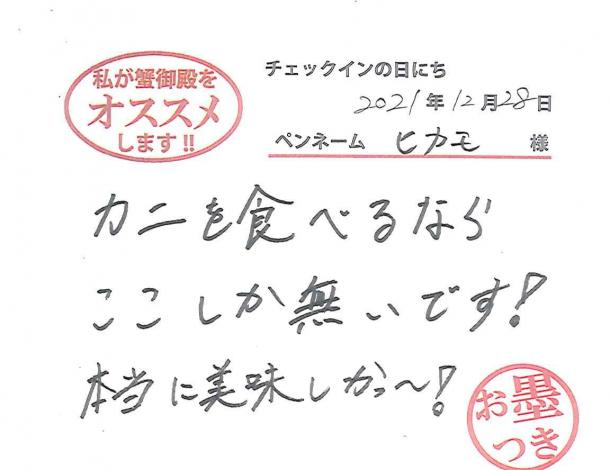 私が蟹御殿を
オススメ
します!!
チェックインの日にち
2021年12月28日
ペンネーム ヒカモ 様
カニを食べるなら
ここしか無いです!
本当に美味しかっ〜!
お墨
つき